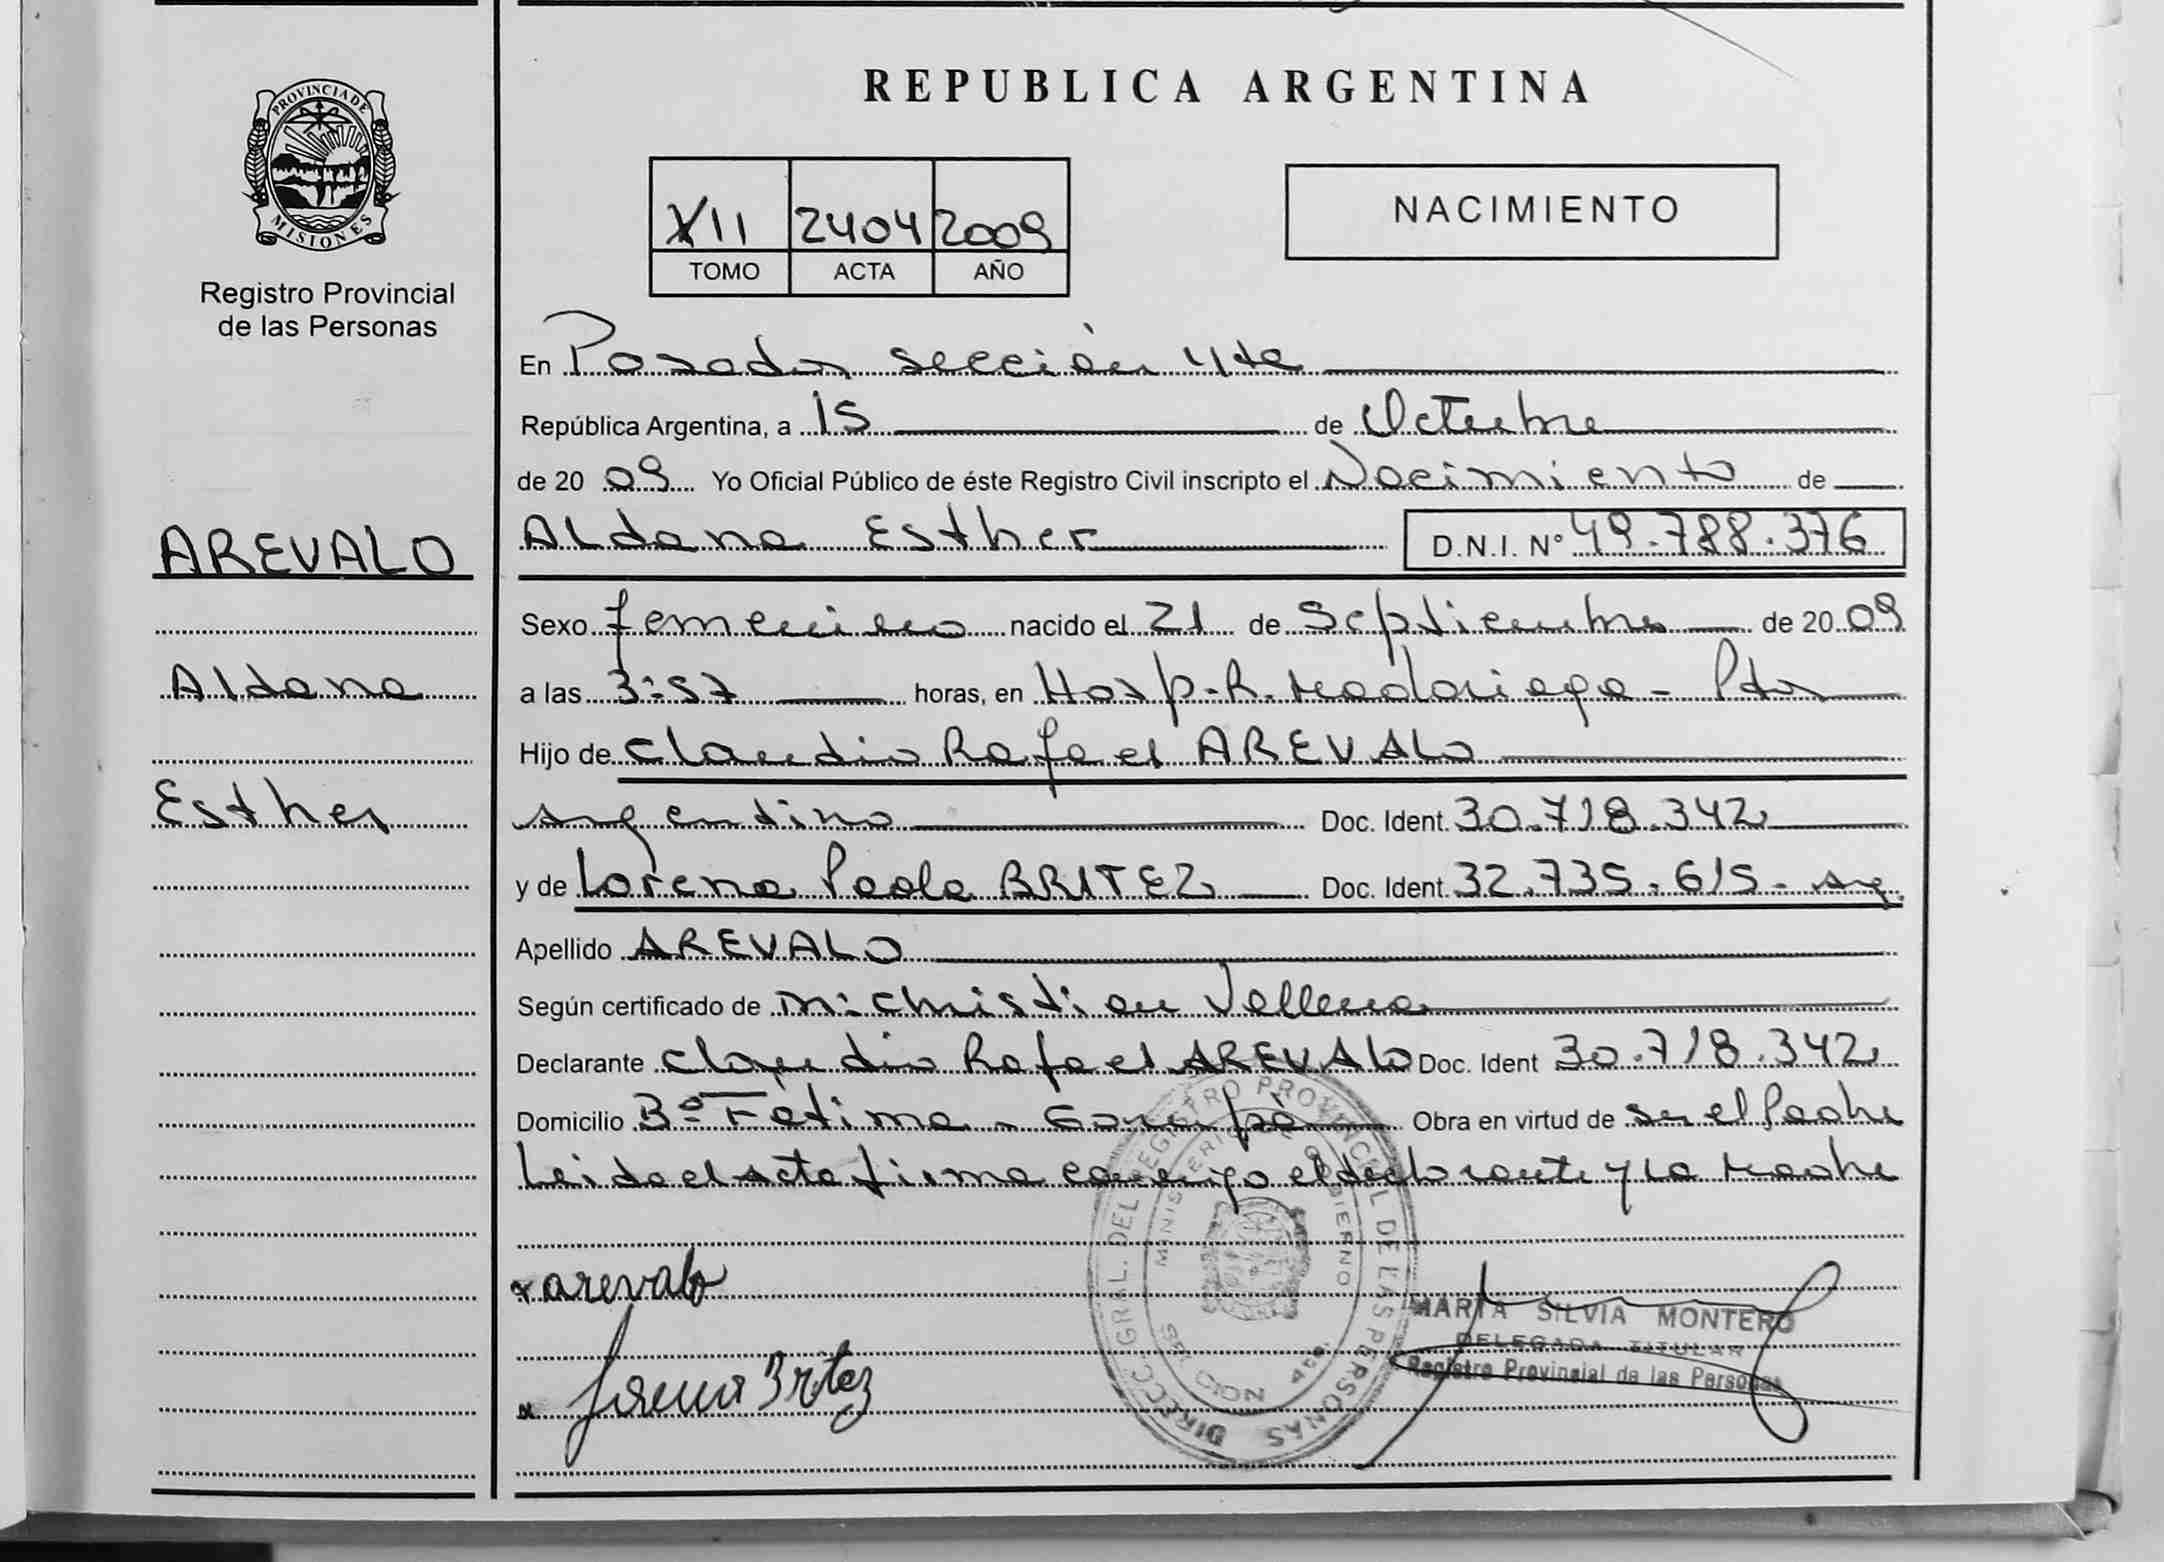 REPUBLICA ARGENTINA
PROVINCIA DE MISIONES
Registro Provincial
de las Personas
XII 2404 2009
TOMO ACTA AÑO
NACIMIENTO
En Posadas sección 4ta
República Argentina, a 15 de Octubre
de 20 09 Yo Oficial Público de éste Registro Civil inscripto el Nacimiento de
AREVALO
Aldana
Esther
Aldana Esther D.N.I. Nº 49.788.376
Sexo femenino nacido el 21 de Septiembre de 20 09
a las 3:57 horas, en Hosp. R. Madariaga - Pdas
Hijo de Claudio Rafael AREVALO
argentino Doc. Ident. 30.718.342
y de Lorena Paola BRITEZ Doc. Ident. 32.735.615 - arg.
Apellido AREVALO
Según certificado de Christian
Declarante Claudio Rafael AREVALO Doc. Ident 30.718.342
Domicilio Bº Fátima - Garupá Obra en virtud de ser el Padre
Leida el acta firma conmigo el declarante y la Madre
arevalo
Lorena Britez
DIRECC. GRAL. DEL REGISTRO PROVINCIAL DE LAS PERSONAS
MINISTERIO DE GOBIERNO
SECCION 4ta.
MARTA SILVIA MONTERO
DELEGADA TITULAR
Registro Provincial de las Personas